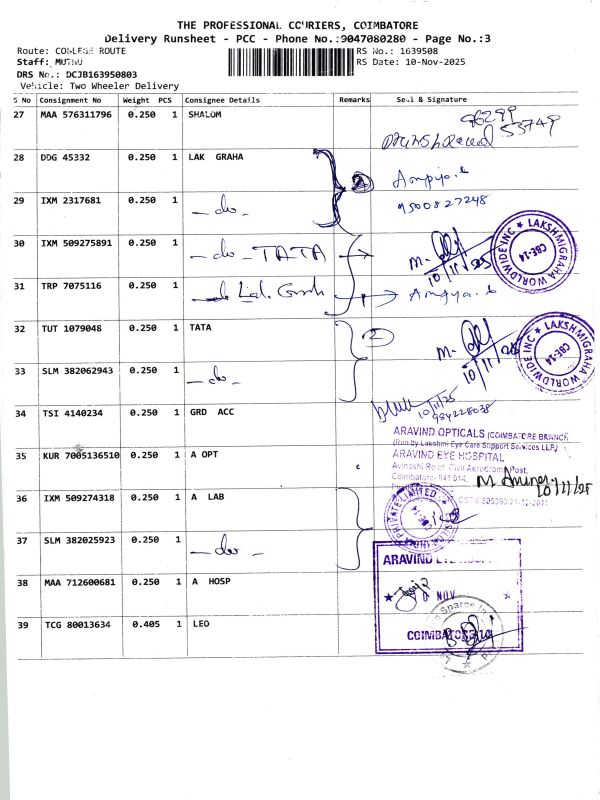 THE PROFESSIONAL COURIERS, COIMBATORE
Delivery Runsheet - PCC - Phone No.:9047080280 - Page No.:3
Route: COLLEGE ROUTE RS No.: 1639508
Staff: MUTHU RS Date: 10-Nov-2025
DRS No.: DCJB163950803
Vehicle: Two Wheeler Delivery
S No Consignment No Weight PCS Consignee Details Remarks Seal & Signature
27 MAA 576311796 0.250 1 SHALOM
96299
53749
28 DDG 45332 0.250 1 LAK GRAHA 2
29 IXM 2317681 0.250 1 - do - 9500827248
30 IXM 509275891 0.250 1 - do - TATA
M.
10/11/25
LAKSHMIGRAHA WORLDWIDE INC ★ CBE-14
31 TRP 7075116 0.250 1
32 TUT 1079048 0.250 1 TATA 2
M.
10/11/25
LAKSHMIGRAHA WORLDWIDE INC ★ CBE-14
33 SLM 382062943 0.250 1 - do -
34 TSI 4140234 0.250 1 GRD ACC
10/11/25
ARAVIND OPTICALS (COIMBATORE BRANCH)
(Run by Lakshmi Eye Care Support Services LLP)
35 KUR 7005136510 0.250 1 A OPT
ARAVIND EYE HOSPITAL
Avinashi Road, Civil Aerodrome Post,
Coimbatore-641 014.
M.
10/11/25
36 IXM 509274318 0.250 1 A LAB
PRIVATE LIMITED
37 SLM 382025923 0.250 1 - do -
ARAVIND EYE HOSPITAL
38 MAA 712600681 0.250 1 A HOSP
NOV
39 TCG 80013634 0.405 1 LEO
Spares
COIMBATORE-14